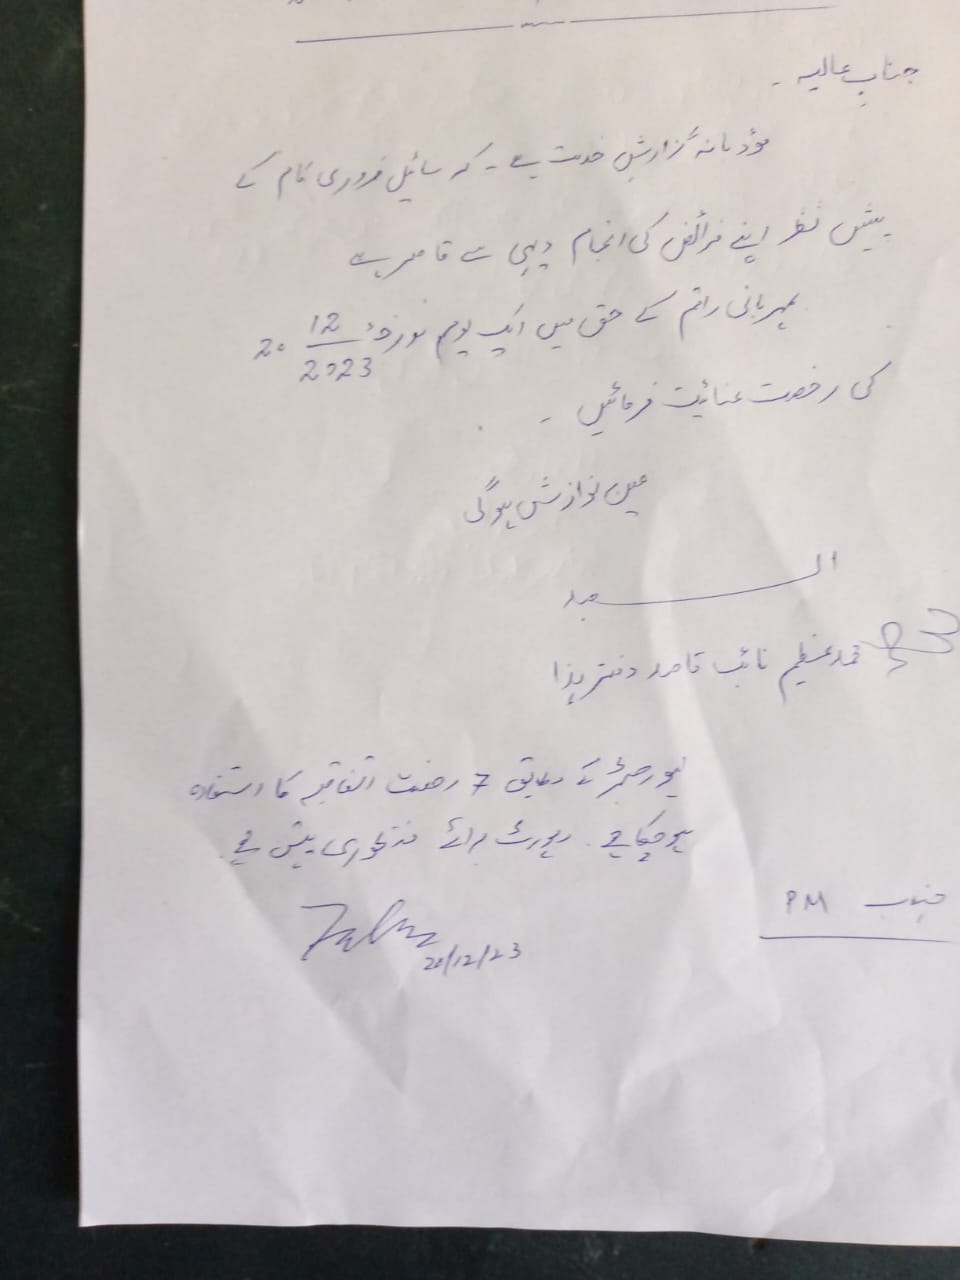 جناب عالیہ ۔
مؤدبانہ گزارش خدمت ہے ۔ کہ سائیل ضروری کام کے
پیش نظر اپنے فرائض کی انجام دہی سے قاصر ہے
مہربانی راقم کے حق میں ایک یوم مورخہ 20 12/2023
کی رخصت عنائیت فرمائیں ۔
عین نوازش ہوگی
العبد
محمد عظیم نائب قاصد دفتر ہذا
لیو رجسٹر کے مطابق 7 رخصت اتفاقیہ کا استفادہ
ہو چکا ہے ۔ رپورٹ برائے منظوری پیش ہے ۔
جناب PM
20/12/23